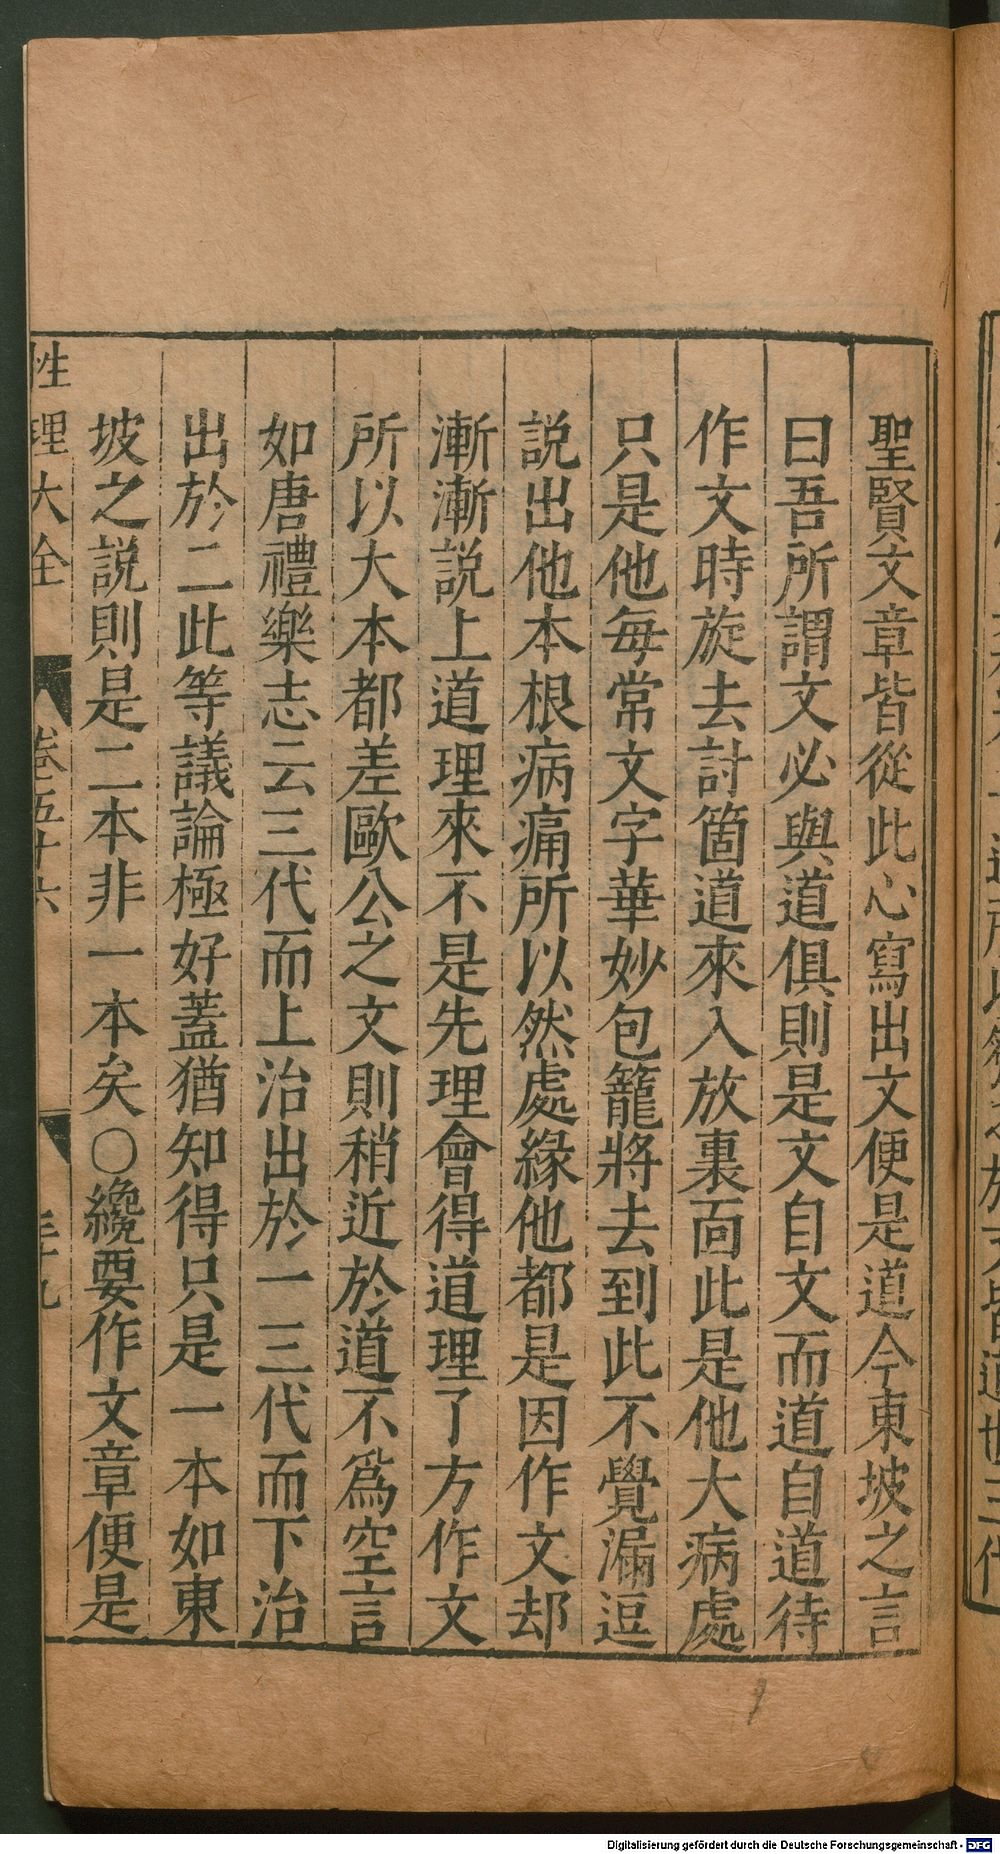 聖賢文章皆從此心寫出文便是道今東坡之言
曰吾所謂文必與道俱則是文自文而道自道待
作文時旋去討箇道來入放裏靣此是他大病處
只是他每常文字華妙包籠將去到此不覺漏逗
説出他本根病痛所以然處緣他都是因作文却
漸漸説上道理來不是先理會得道理了方作文
所以大本都差歐公之文則稍近於道不爲空言
如唐禮樂志云三代而上治出於一三代而下治
出於二此等議論極好蓋猶知得只是一本如東
坡之説則是二本非一本矣○纔要作文章便是
性理大全 卷五十六
Digitalisierung gefördert durch die Deutsche Forschungsgemeinschaft - DFG